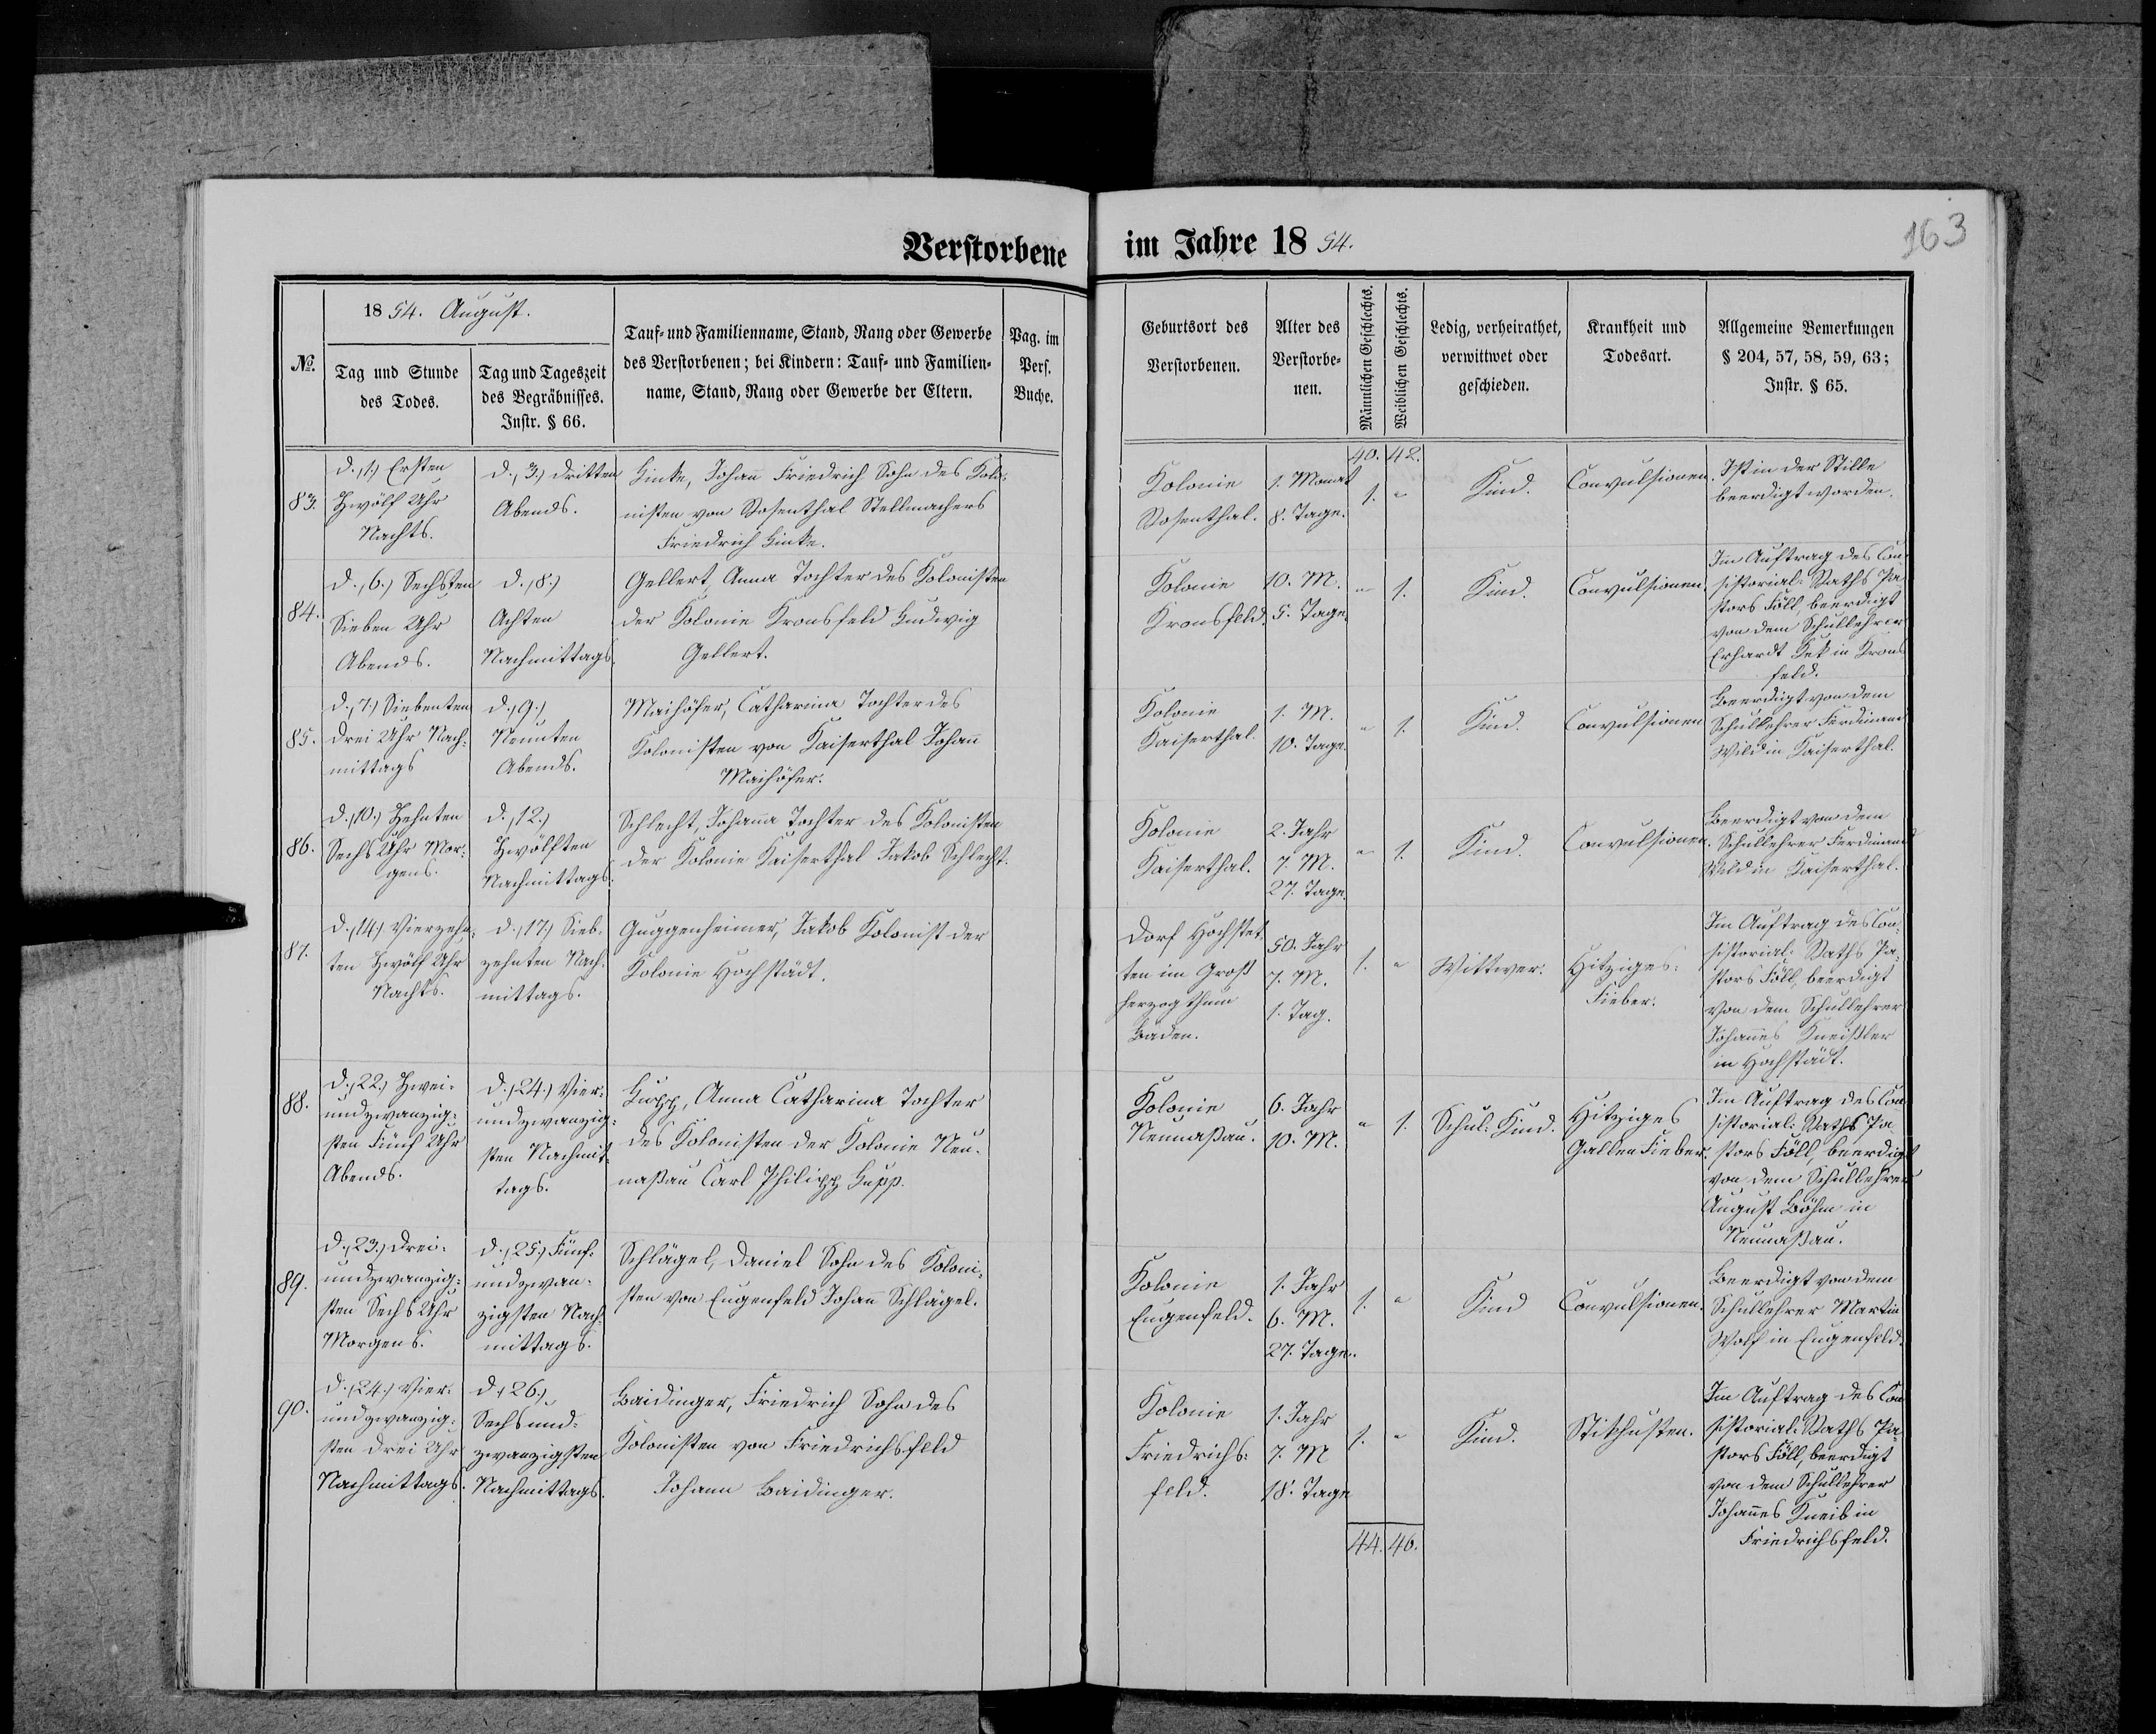 Verstorbene im Jahre 1854.
163
No.
1854. August.
Tag und Stunde
des Todes.
Tag und Tageszeit
des Begräbnisses.
Instr. § 66.
Tauf- und Familienname, Stand, Rang oder Gewerbe
des Verstorbenen; bei Kindern: Tauf- und Familien-
name, Stand, Rang oder Gewerbe der Eltern.
Pag. im
Pers.
Buche.
Geburtsort des
Verstorbenen.
Alter des
Verstorbe-
nen.
Männlichen Geschlechts.
Weiblichen Geschlechts.
Ledig, verheirathet,
verwittwet oder
geschieden.
Krankheit und
Todesart.
Allgemeine Bemerkungen
§ 204, 57, 58, 59, 63;
Instr. § 65.
40. 42.
83.
d., 1.) Ersten
Zwölf Uhr
Nachts.
d., 3.) dritten
Abends.
Johann Friedrich Sohn des Kolo-
nisten von Rosenthal Stellmachers
Friedrich
Kolonie
Rosenthal.
1. Monat
8. Tage.
1. "
Kind.
Convulsionen.
Ist in der Stille
beerdigt worden.
84.
d., 6.) Sechsten
Sieben Uhr
Abends.
d., 8.)
Achten
Nachmittags.
Gellert, Anna Tochter des Kolonisten
der Kolonie Kronsfeld Ludwig
Gellert.
Kolonie
Kronsfeld.
10. M.
5. Tage.
" 1.
Kind.
Convulsionen.
Im Auftrag des Con-
sistorial-Raths Pa-
stors Föll, beerdigt
von dem Schullehrer
Erhardt in Krons
feld.
85.
d., 7.) Siebenten
drei Uhr Nach-
mittags
d., 9.)
Neunten
Abends.
Maihöfer, Catharina Tochter des
Kolonisten von Kaiserthal Johann
Maihöfer.
Kolonie
Kaiserthal.
1. M.
10. Tage.
" 1.
Kind.
Convulsionen
Beerdigt von dem
Schullehrer Ferdinand
Wild in Kaiserthal.
86.
d., 10.) Zehnten
Sechs Uhr Mor-
gens.
d., 12.)
Zwölften
Nachmittags.
Schlecht, Johanna Tochter des Kolonisten
der Kolonie Kaiserthal Jakob Schlecht.
Kolonie
Kaiserthal.
2. Jahr
7. M.
27. Tage.
" 1.
Kind.
Convulsionen.
Beerdigt von dem
Schullehrer Ferdinand
Wild in Kaiserthal.
87.
d., 14.) Vierzehn-
ten Zwölf Uhr
Nachts.
d., 17.) Sieb-
zehnten Nach-
mittags.
Guggenheimer, Jakob Kolonist der
Kolonie Hochstädt.
Dorf Hochstet-
ten im Groß
herzogthum
Baden.
50. Jahr
7. M.
1. Tag.
1. "
Wittwer.
Hitziges-
Fieber.
Im Auftrag des Con-
sistorial-Raths Pa-
stors Föll, beerdigt
von dem Schullehrer
Johannes
in Hochstädt.
88.
d., 22.) Zwei-
undzwanzig-
sten Fünf Uhr
Abends.
d., 24.) Vier-
undzwanzig-
sten Nachmit-
tags.
Anna Catharina Tochter
des Kolonisten der Kolonie Neu-
naßau Carl Philipp
Kolonie
Neunaßau.
6. Jahr
10. M.
" 1.
Schul-Kind.
Hitziges
Gallen Fieber.
Im Auftrag des Con
sistorial-Raths Pa
stors Föll, beerdigt
von dem Schullehrer
August Böhm in
Neunaßau.
89.
d., 23.) Drei-
undzwanzig-
sten Sechs Uhr
Morgens.
d., 25.) Fünf-
undzwan-
zigsten Nach-
mittags.
Schlägel, Daniel Sohn des Koloni-
sten von Eugenfeld Johann Schlägel.
Kolonie
Eugenfeld.
1. Jahr
6. M.
27. Tage.
1. "
Kind
Convulsionen.
Beerdigt von dem
Schullehrer Martin
Wolf in Eugenfeld.
90.
d., 24.) Vier-
undzwanzig-
sten drei Uhr
Nachmittags.
d., 26.)
Sechsund-
zwanzigsten
Nachmittags.
Baidinger, Friedrich Sohn des
Kolonisten von Friedrichsfeld
Johann Baidinger.
Kolonie
Friedrichs-
feld.
1. Jahr
7. M
18. Tage
1. "
Kind.
Stikhusten.
Im Auftrag des Con
sistorial-Raths Pa-
stors Föll, beerdigt
von dem Schullehrer
Johannes Kneib in
Friedrichsfeld.
44. 46.